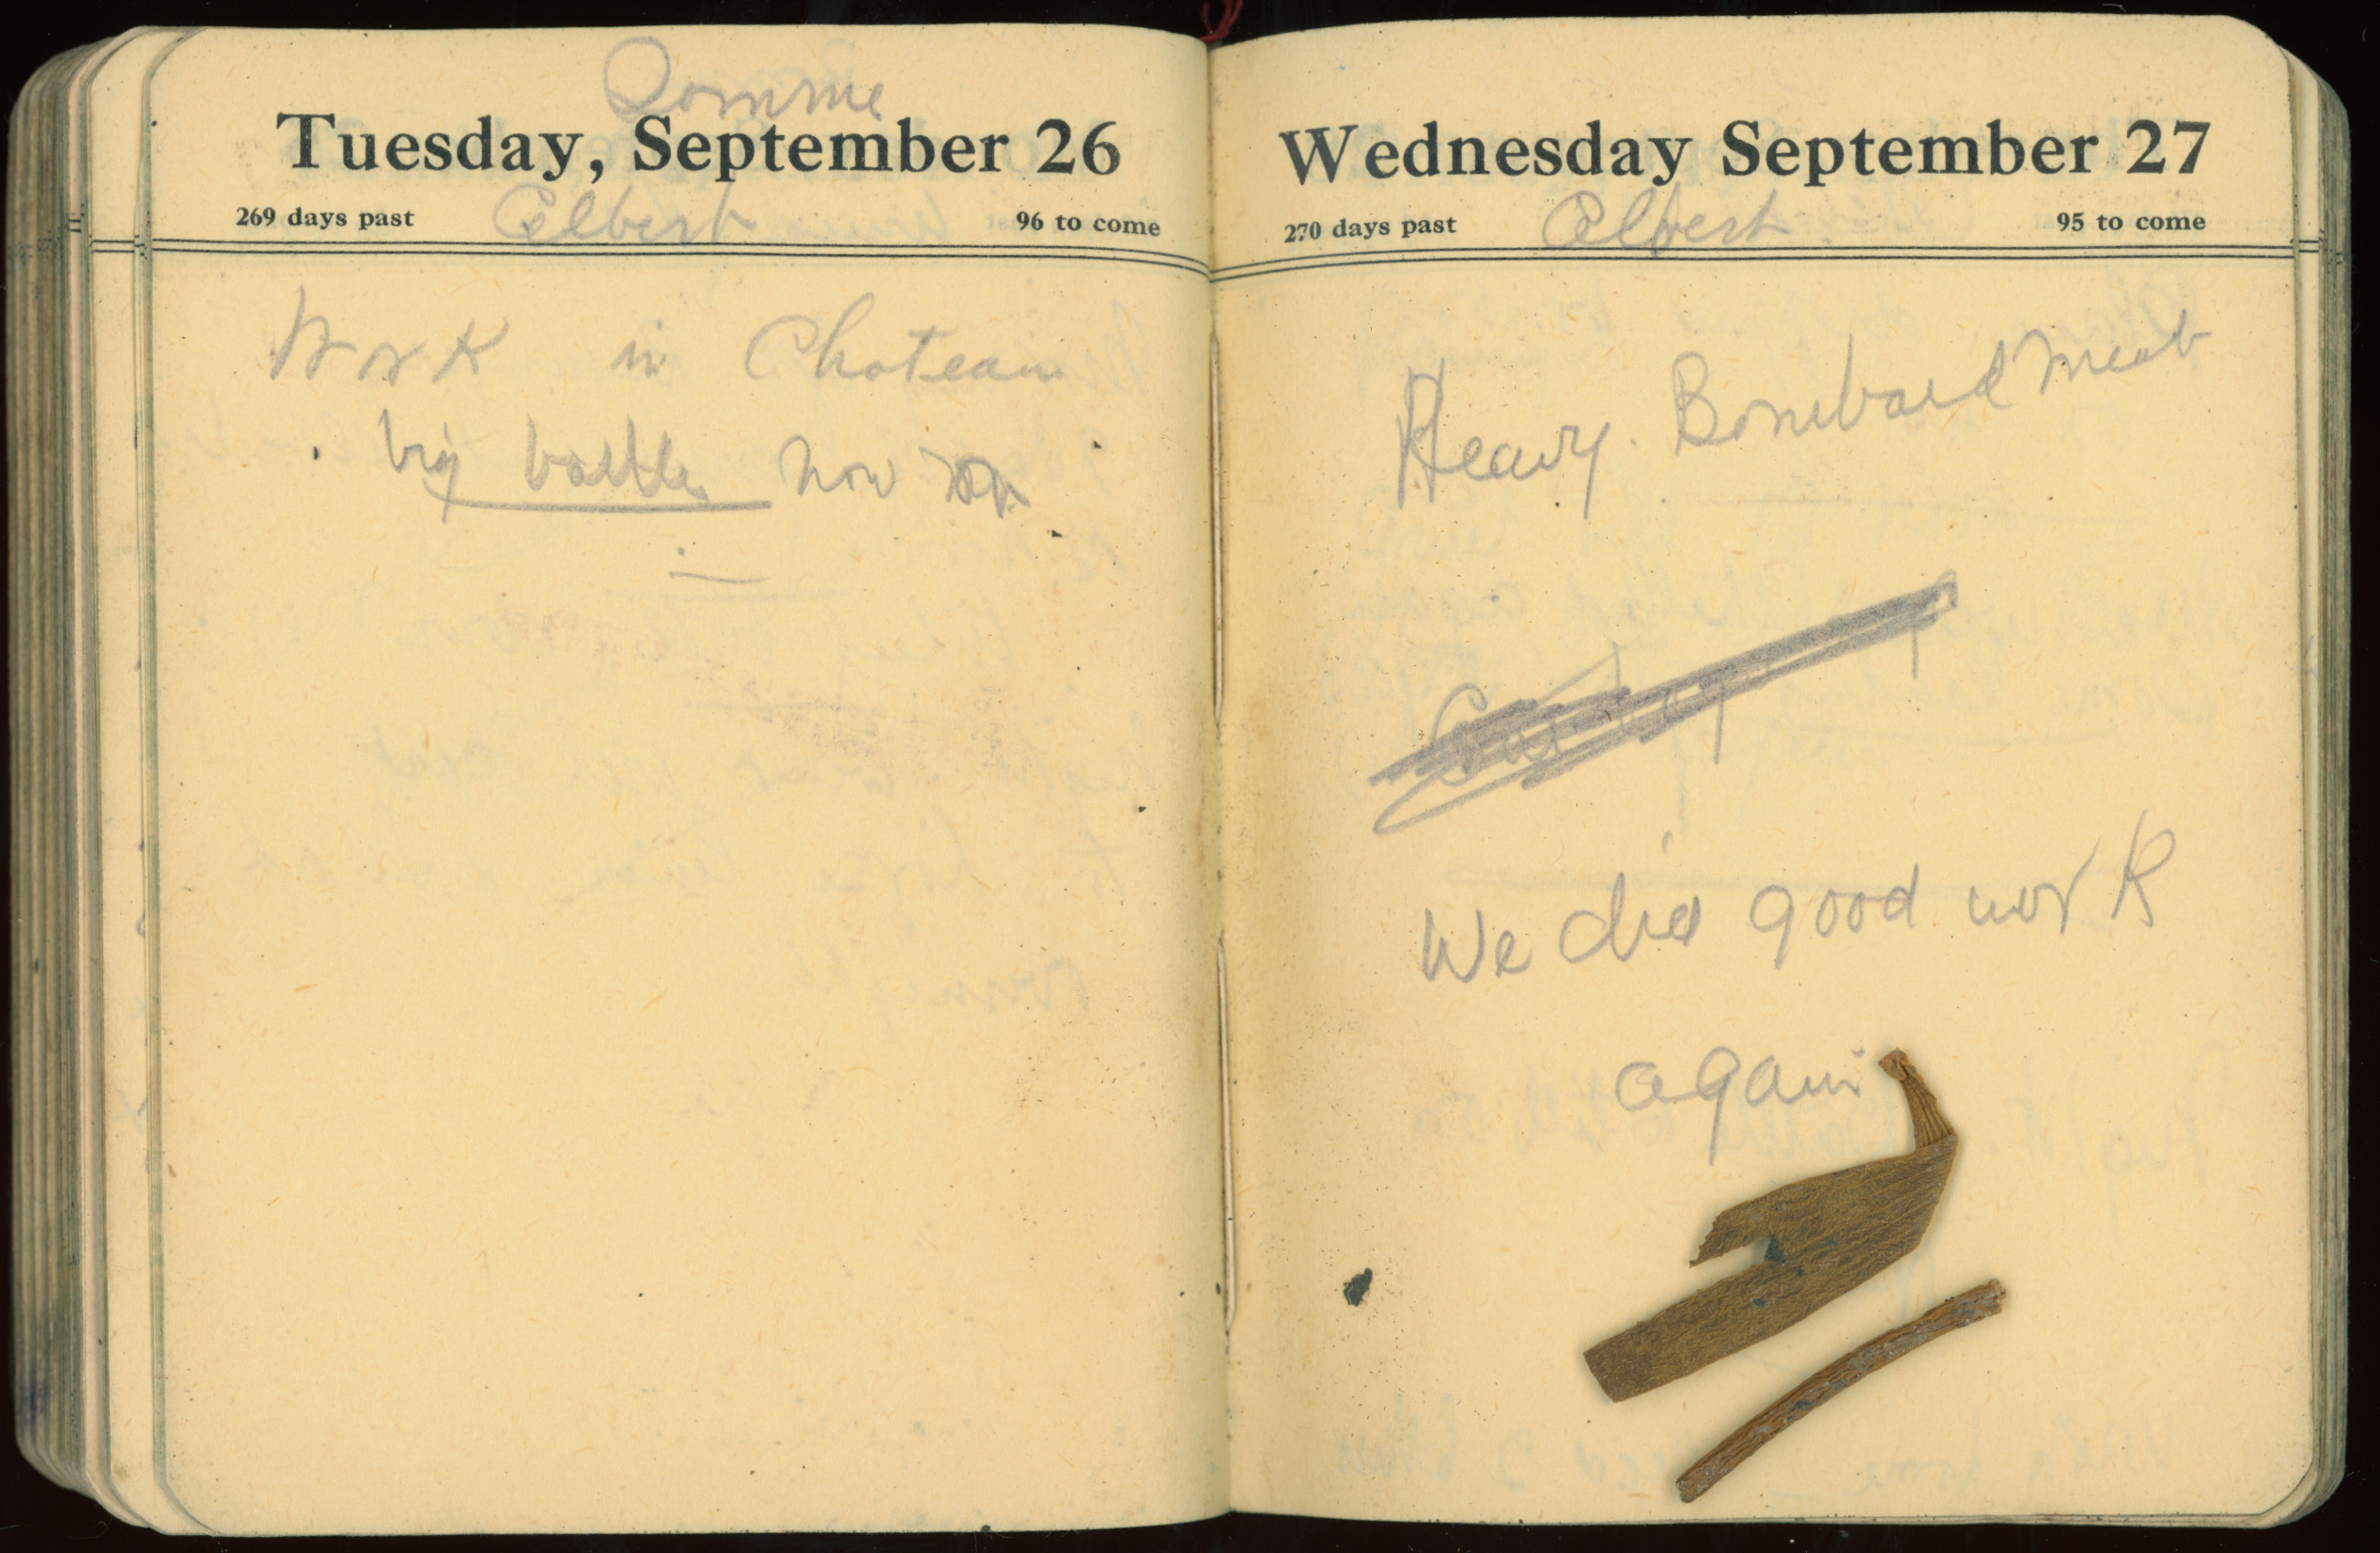 Somme
Tuesday, September 26
269 days past Albert 96 to come
Work in Chateau
big battle now on
Wednesday September 27
270 days past Albert 95 to come
Heavy Bombardment
We did good work
again